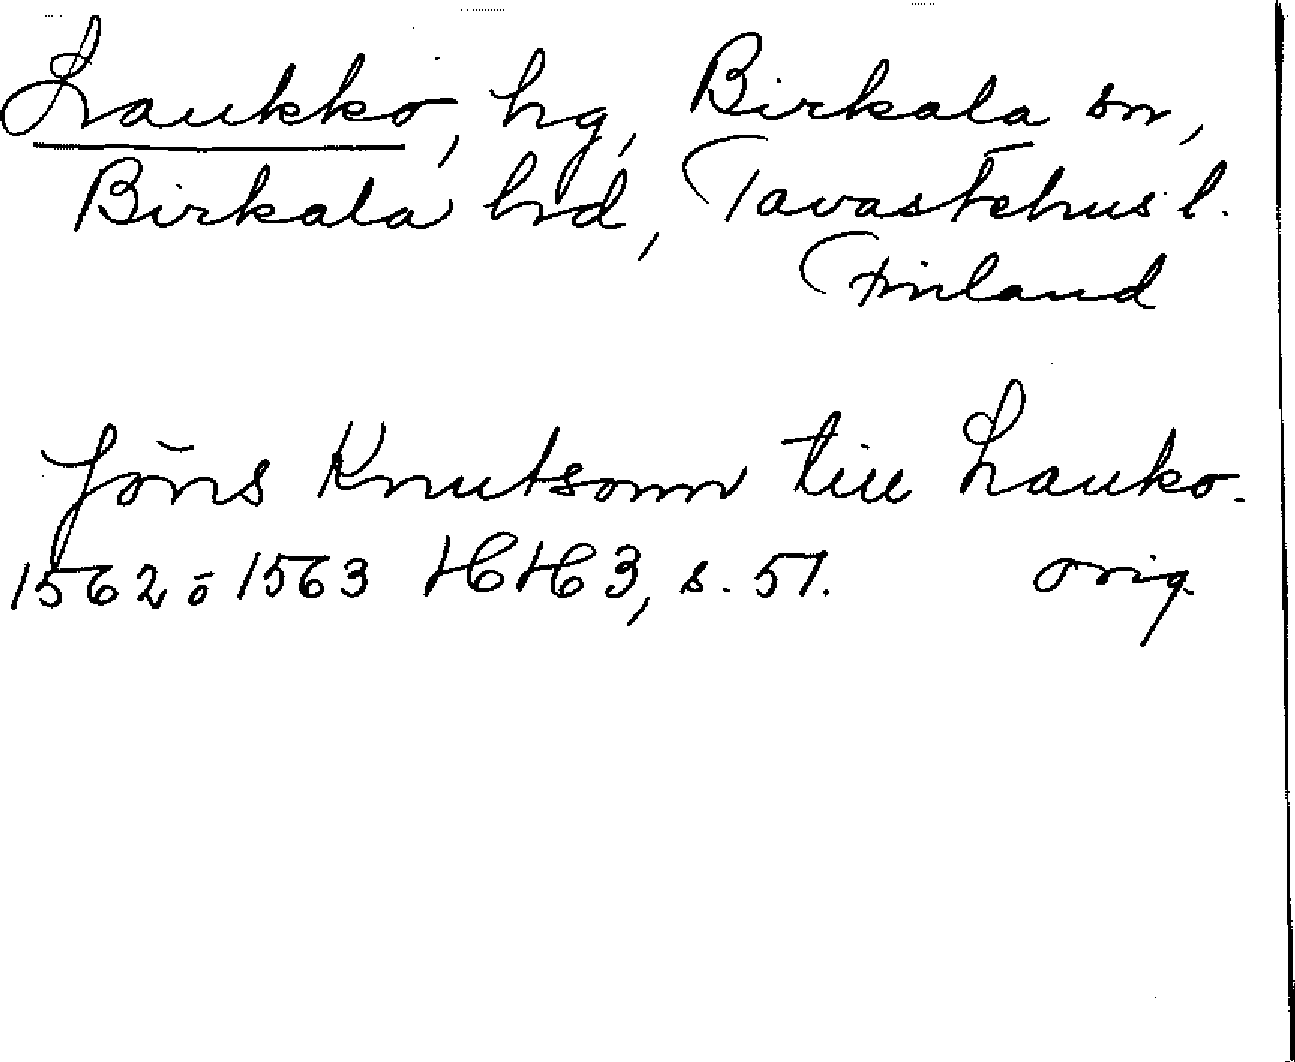 Laukko, hg, Birkala sn,
Birkala hrd, Tavastehus l.
Finland
Jöns Knutsonn till Lauko.
1562 o 1563 HH 3, s. 51. orig.